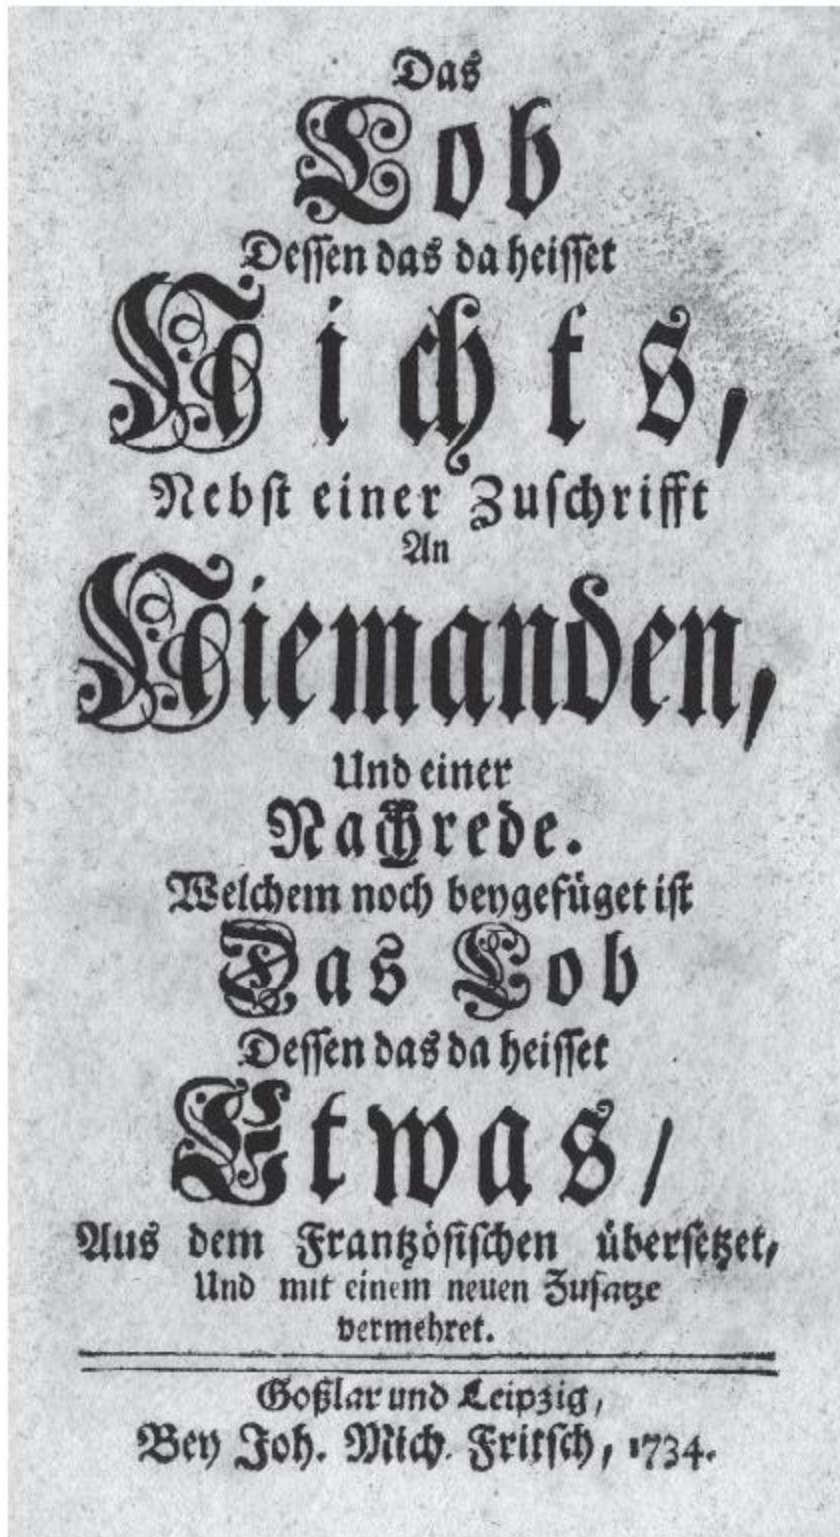 Das
Lob
Dessen das da heisset
Nichts,
Nebst einer Zuschrifft
An
Niemanden,
Und einer
Nachrede.
Welchem noch beygefüget ist
Das Lob
Dessen das da heisset
Etwas/
Aus dem Frantzösischen übersetzet,
Und mit einem neuen Zusatze
vermehret.
Goßlar und Leipzig,
Bey Joh. Mich. Fritsch, 1734.